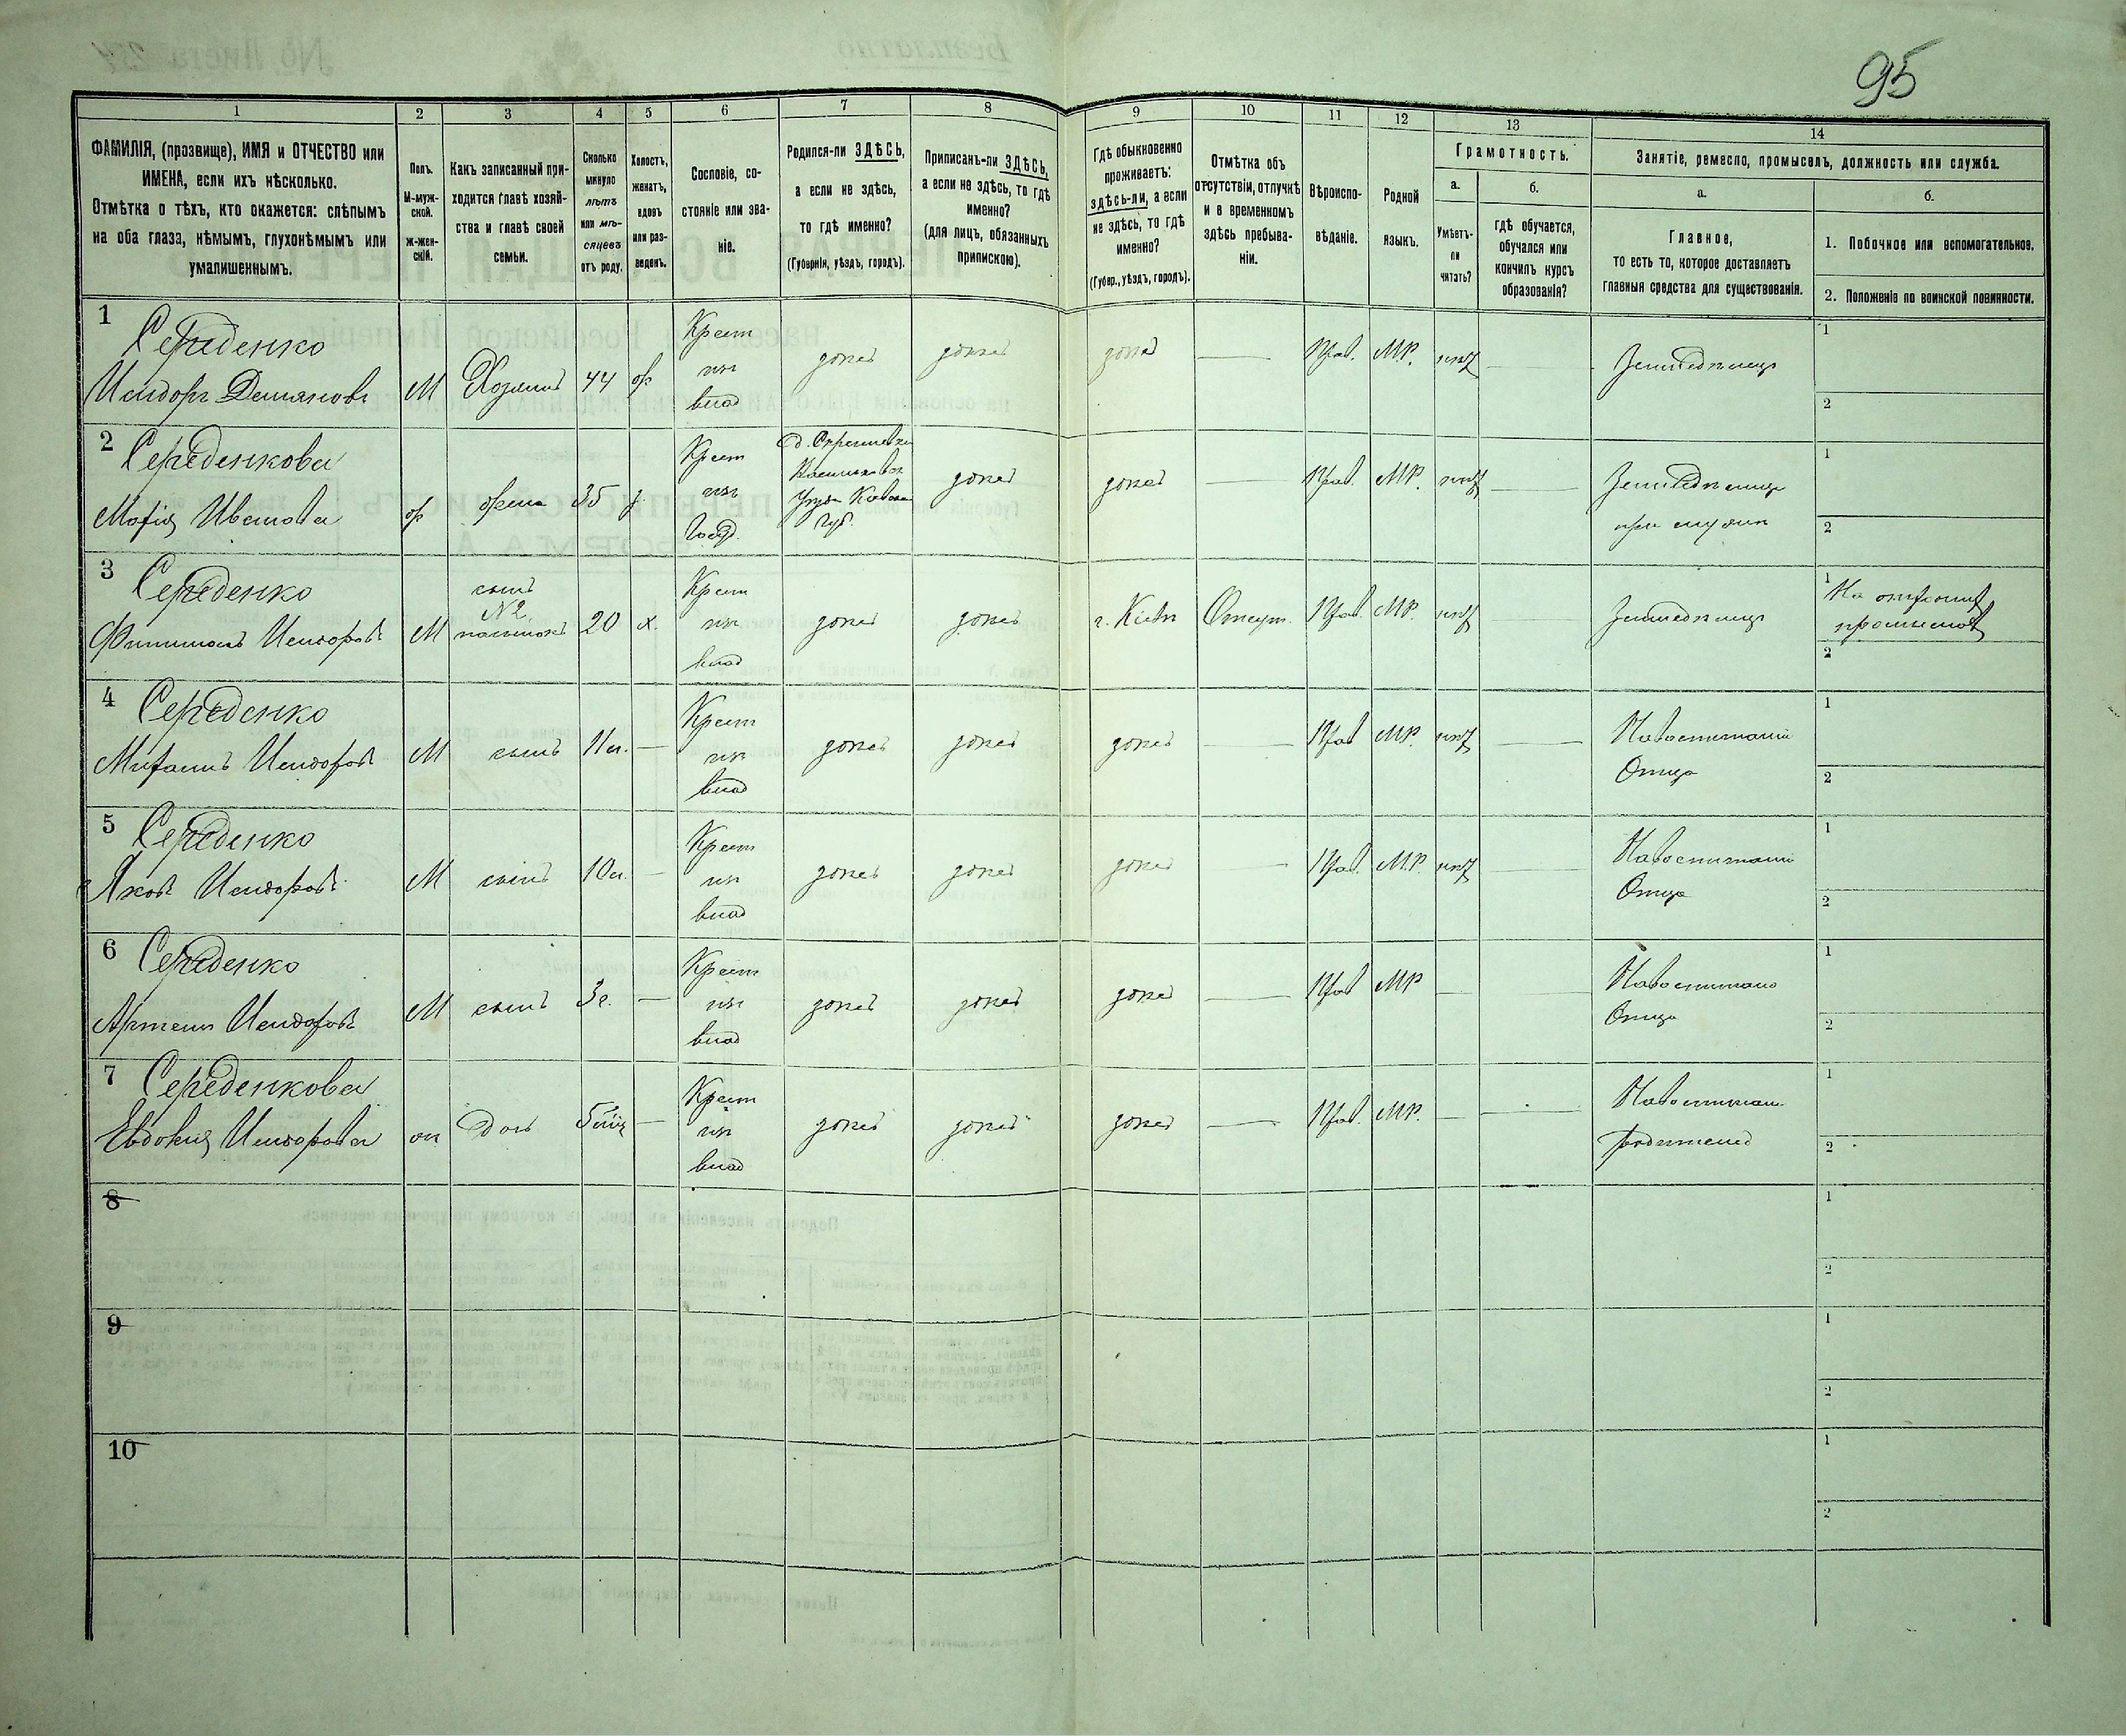 95
1 2 3 4 5 6 7 8 9 10 11 12 13 14
ФАМИЛІЯ, (прозвище), ИМЯ и ОТЧЕСТВО или
ИМЕНА, если ихъ нѣсколько.
Отмѣтка о тѣхъ, кто окажется: слѣпымъ
на оба глаза, нѣмымъ, глухонѣмымъ или
умалишеннымъ.
Полъ.
М-муж-
ской.
ж-жен-
скій.
Какъ записанный при-
ходится главѣ хозяй-
ства и главѣ своей
семьи.
Сколько
минуло
лѣтъ
или мѣ-
сяцевъ
отъ роду.
Холостъ,
женатъ,
вдовъ
или раз-
веденъ.
Сословіе, со-
стояніе или зва-
ніе.
Родился-ли ЗДѢСЬ,
а если не здѣсь,
то гдѣ именно?
(Губернія, уѣздъ, городъ).
Приписанъ-ли ЗДѢСЬ,
а если не здѣсь, то гдѣ
именно?
(для лицъ, обязанныхъ
припискою).
Гдѣ обыкновенно
проживаетъ:
здѣсь-ли, а если
не здѣсь, то гдѣ
именно?
(Губер., уѣздъ, городъ).
Отмѣтка объ
отсутствіи, отлучкѣ
и в временномъ
здѣсь пребыва-
ніи.
Вѣроиспо-
вѣданіе.
Родной
языкъ.
Грамотность.
а.
Умѣетъ-
ли
читать?
б.
гдѣ обучается,
обучался или
кончилъ курсъ
образованія?
Занятіе, ремесло, промыселъ, должность или служба.
а.
Главное,
то есть то, которое доставляетъ
главныя средства для существованія.
б.
1. Побочное или вспомогательное.
2. Положеніе по воинской повинности.
1
Середенко
Исидоръ Демяновъ
М
Хозяинъ
44
Крест
изъ
влад
здѣсь
здѣсь
здѣсь
—
Прав.
М.Р.
нѣтъ
—
Земледѣлецъ
1
2
2
Середенкова
Марія Иванова
жена
35
Крест
изъ
Госуд.
Уѣзда Кіевской
губ.
здѣсь
здѣсь
—
Прав.
М.Р.
нѣтъ
—
при мужѣ
1
2
3
Середенко
Исидоровъ
М
сынъ
№ 2
20
х.
Крест
изъ
влад
здѣсь
здѣсь
г. Кіевъ
Отсут.
Прав.
М.Р.
нѣтъ
—
Земледѣлецъ
1
2
4
Середенко
Исидоровъ
М
сынъ
11 л.
—
Крест
изъ
влад
здѣсь
здѣсь
здѣсь
—
Прав
М.Р.
нѣтъ
—
На воспитаніи
Отца
1
2
5
Середенко
Яковъ Исидоровъ
М
сынъ
10 л.
—
Крест
изъ
влад
здѣсь
здѣсь
здѣсь
—
Прав.
М.Р.
нѣтъ
—
На воспитаніи
Отца
1
2
6
Середенко
Исидоровъ
М
сынъ
3 г.
—
Крест
изъ
влад
здѣсь
здѣсь
здѣсь
—
Прав
М.Р
—
—
Отца
1
2
7
Середенкова
Евдокія Исидорова
Дочь
—
Крест
изъ
влад
здѣсь
здѣсь
здѣсь
—
Прав.
М.Р.
—
—
родителей
1
2
8
1
2
9
1
2
10
1
2